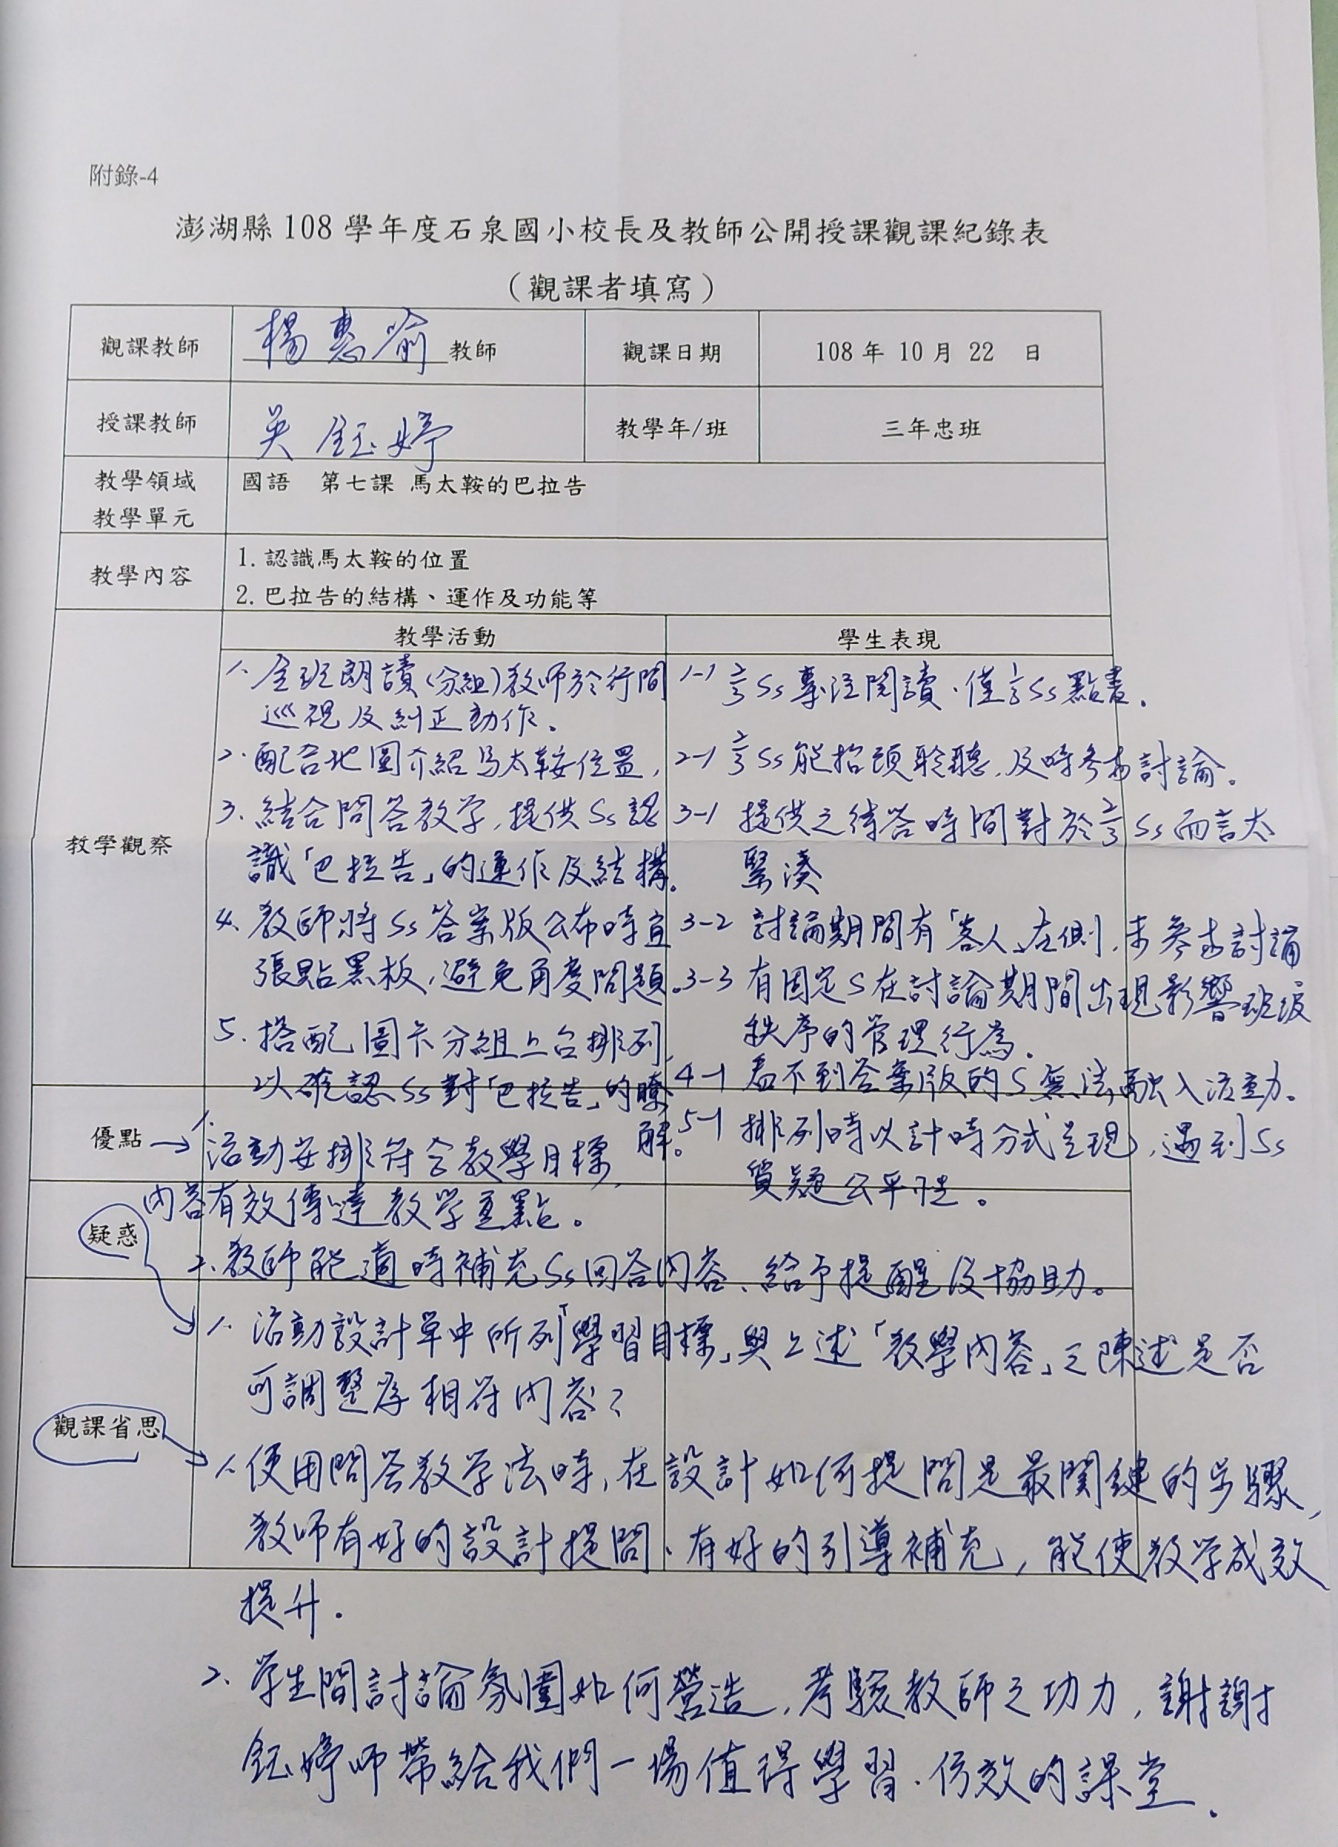 附錄-4
澎湖縣 108 學年度石泉國小校長及教師公開授課觀課紀錄表
（觀課者填寫）
觀課教師 楊惠喻 教師 觀課日期 108 年 10 月 22 日
授課教師 吳鈺婷 教學年/班 三年忠班
教學領域 國語 第七課 馬太鞍的巴拉告
教學單元
教學內容 1.認識馬太鞍的位置
2.巴拉告的結構、運作及功能等
教學觀察
教學活動
1. 全班朗讀(分組)教師於行間
巡視及糾正動作。
2. 配合地圖介紹馬太鞍位置,
3. 結合問答教学,提供Ss認
識「巴拉告」的運作及結構。
4. 教師將Ss答案版公布時宜
張貼黑板,避免角度問題。
5. 搭配圖卡分組上台排列,
以確認Ss對「巴拉告」的瞭
解。
學生表現
1-1 Ss專注閱讀、僅Ss點書。
2-1 Ss能抬頭聆聽,及時參與討論。
3-1 提供之待答時間對於Ss而言太
緊湊
3-2 討論期間有「客人」在側,未參與討論
3-3 有固定S在討論期間出現影響班級
秩序的管理行為.
4-1 看不到答案版的S無法融入活動。
5-1 排列時以計時方式呈現,遇到Ss
質疑公平性。
優點
1. 活動安排符合教學目標,
內容有效傳達教学重點。
2. 教師能適時補充Ss回答內容、給予提醒及協助。
疑惑
1. 活動設計單中所列「學習目標」與上述「教學內容」之陳述是否
可調整為相符內容?
觀課省思
1. 使用問答教学法時,在設計如何提問是最関鍵的步驟,
教师有好的設計提問、有好的引導補充,能使教学成效
提升.
2. 学生間討論氛圍如何營造,考驗教師之功力,謝謝
鈺婷师帶給我們一場值得學習、仿效的課堂.